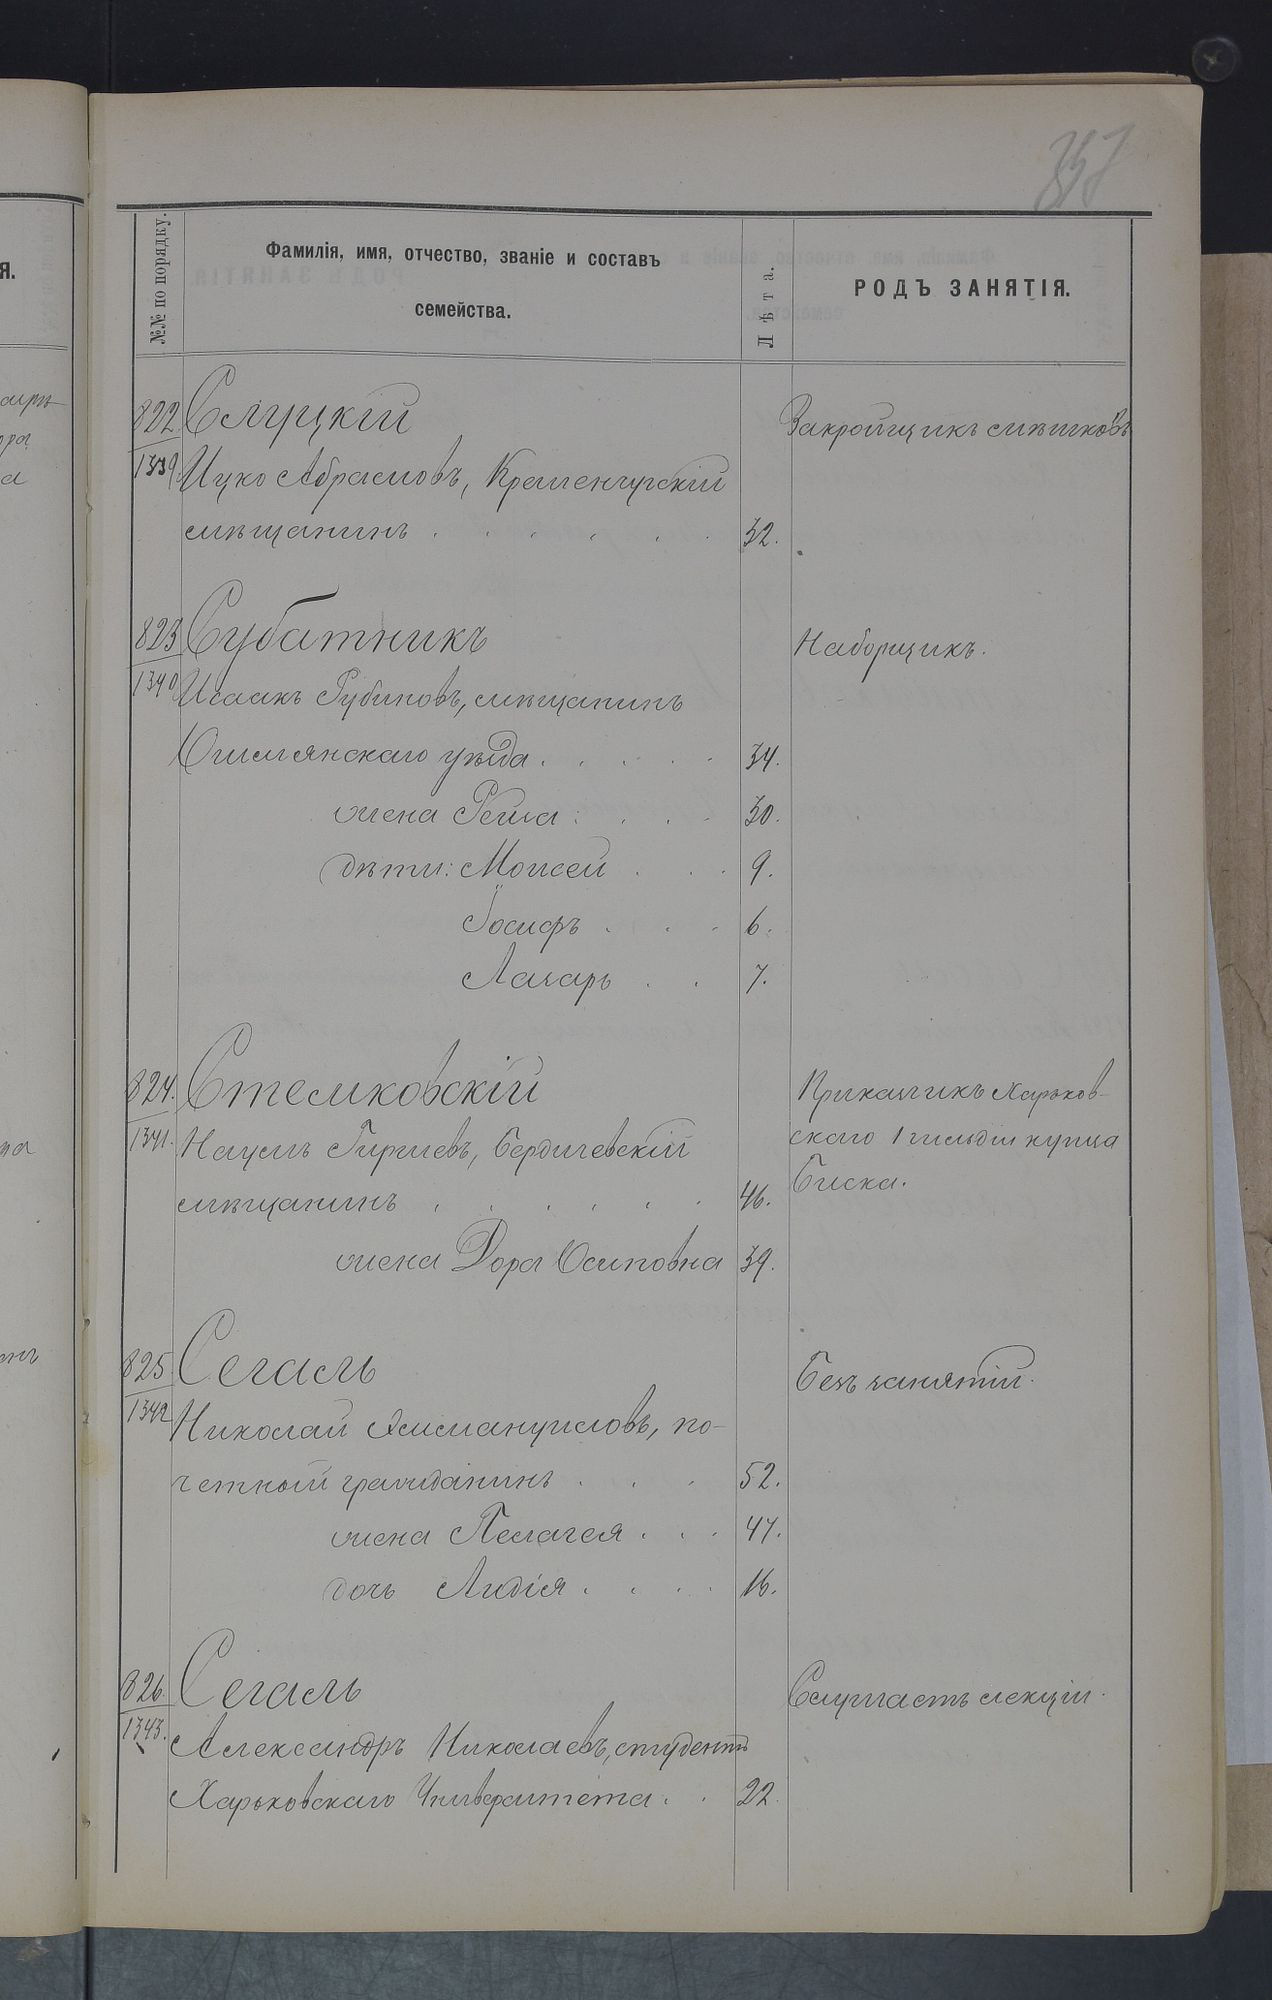 357
№№ по порядку.
Фамилія, имя, отчество, званіе и составъ
семейства.
Лѣта.
РОДЪ ЗАНЯТІЯ.
822 Слуцкій
Закройщикъ мѣшковъ
1339. Ицко Абрамовъ, Кременчугскій
мѣщанинъ . . . . . . 32.
823 Субатникъ
Наборщикъ.
1340 Исаакъ Рубиновъ, мѣщанинъ
Ошмянскаго уѣзда . . . . . 34.
жена Рейза . . . . 30.
дѣти: Моисей . . . 9.
Іосифъ . . . 6.
Лазарь . . 7.
824. Стемковскій
Приказчикъ Харьков-
1341. Наумъ Гиршевъ, Бердичевскій
скаго 1 гильдіи купца
мѣщанинъ . . . . . . 46.
Биска.
жена Дора Осиповна 39.
825 Сегаль
Безъ занятій.
1342 Николай Эммануиловъ, по-
четный гражданинъ . . . 52.
жена Пелагея . . . 47.
дочь Лидія . . . . 16.
826. Сегаль
Слушаетъ лекціи.
1343. Александръ Николаевъ, студентъ
Харьковскаго Университета . . 22.